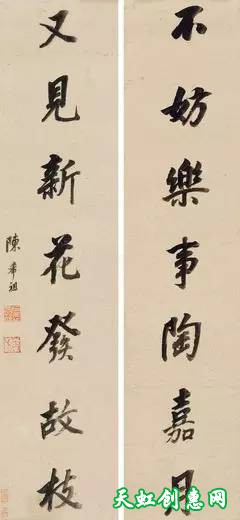 不妨樂事陶嘉月
又見新花發故枝
陳希祖
天虹创意网